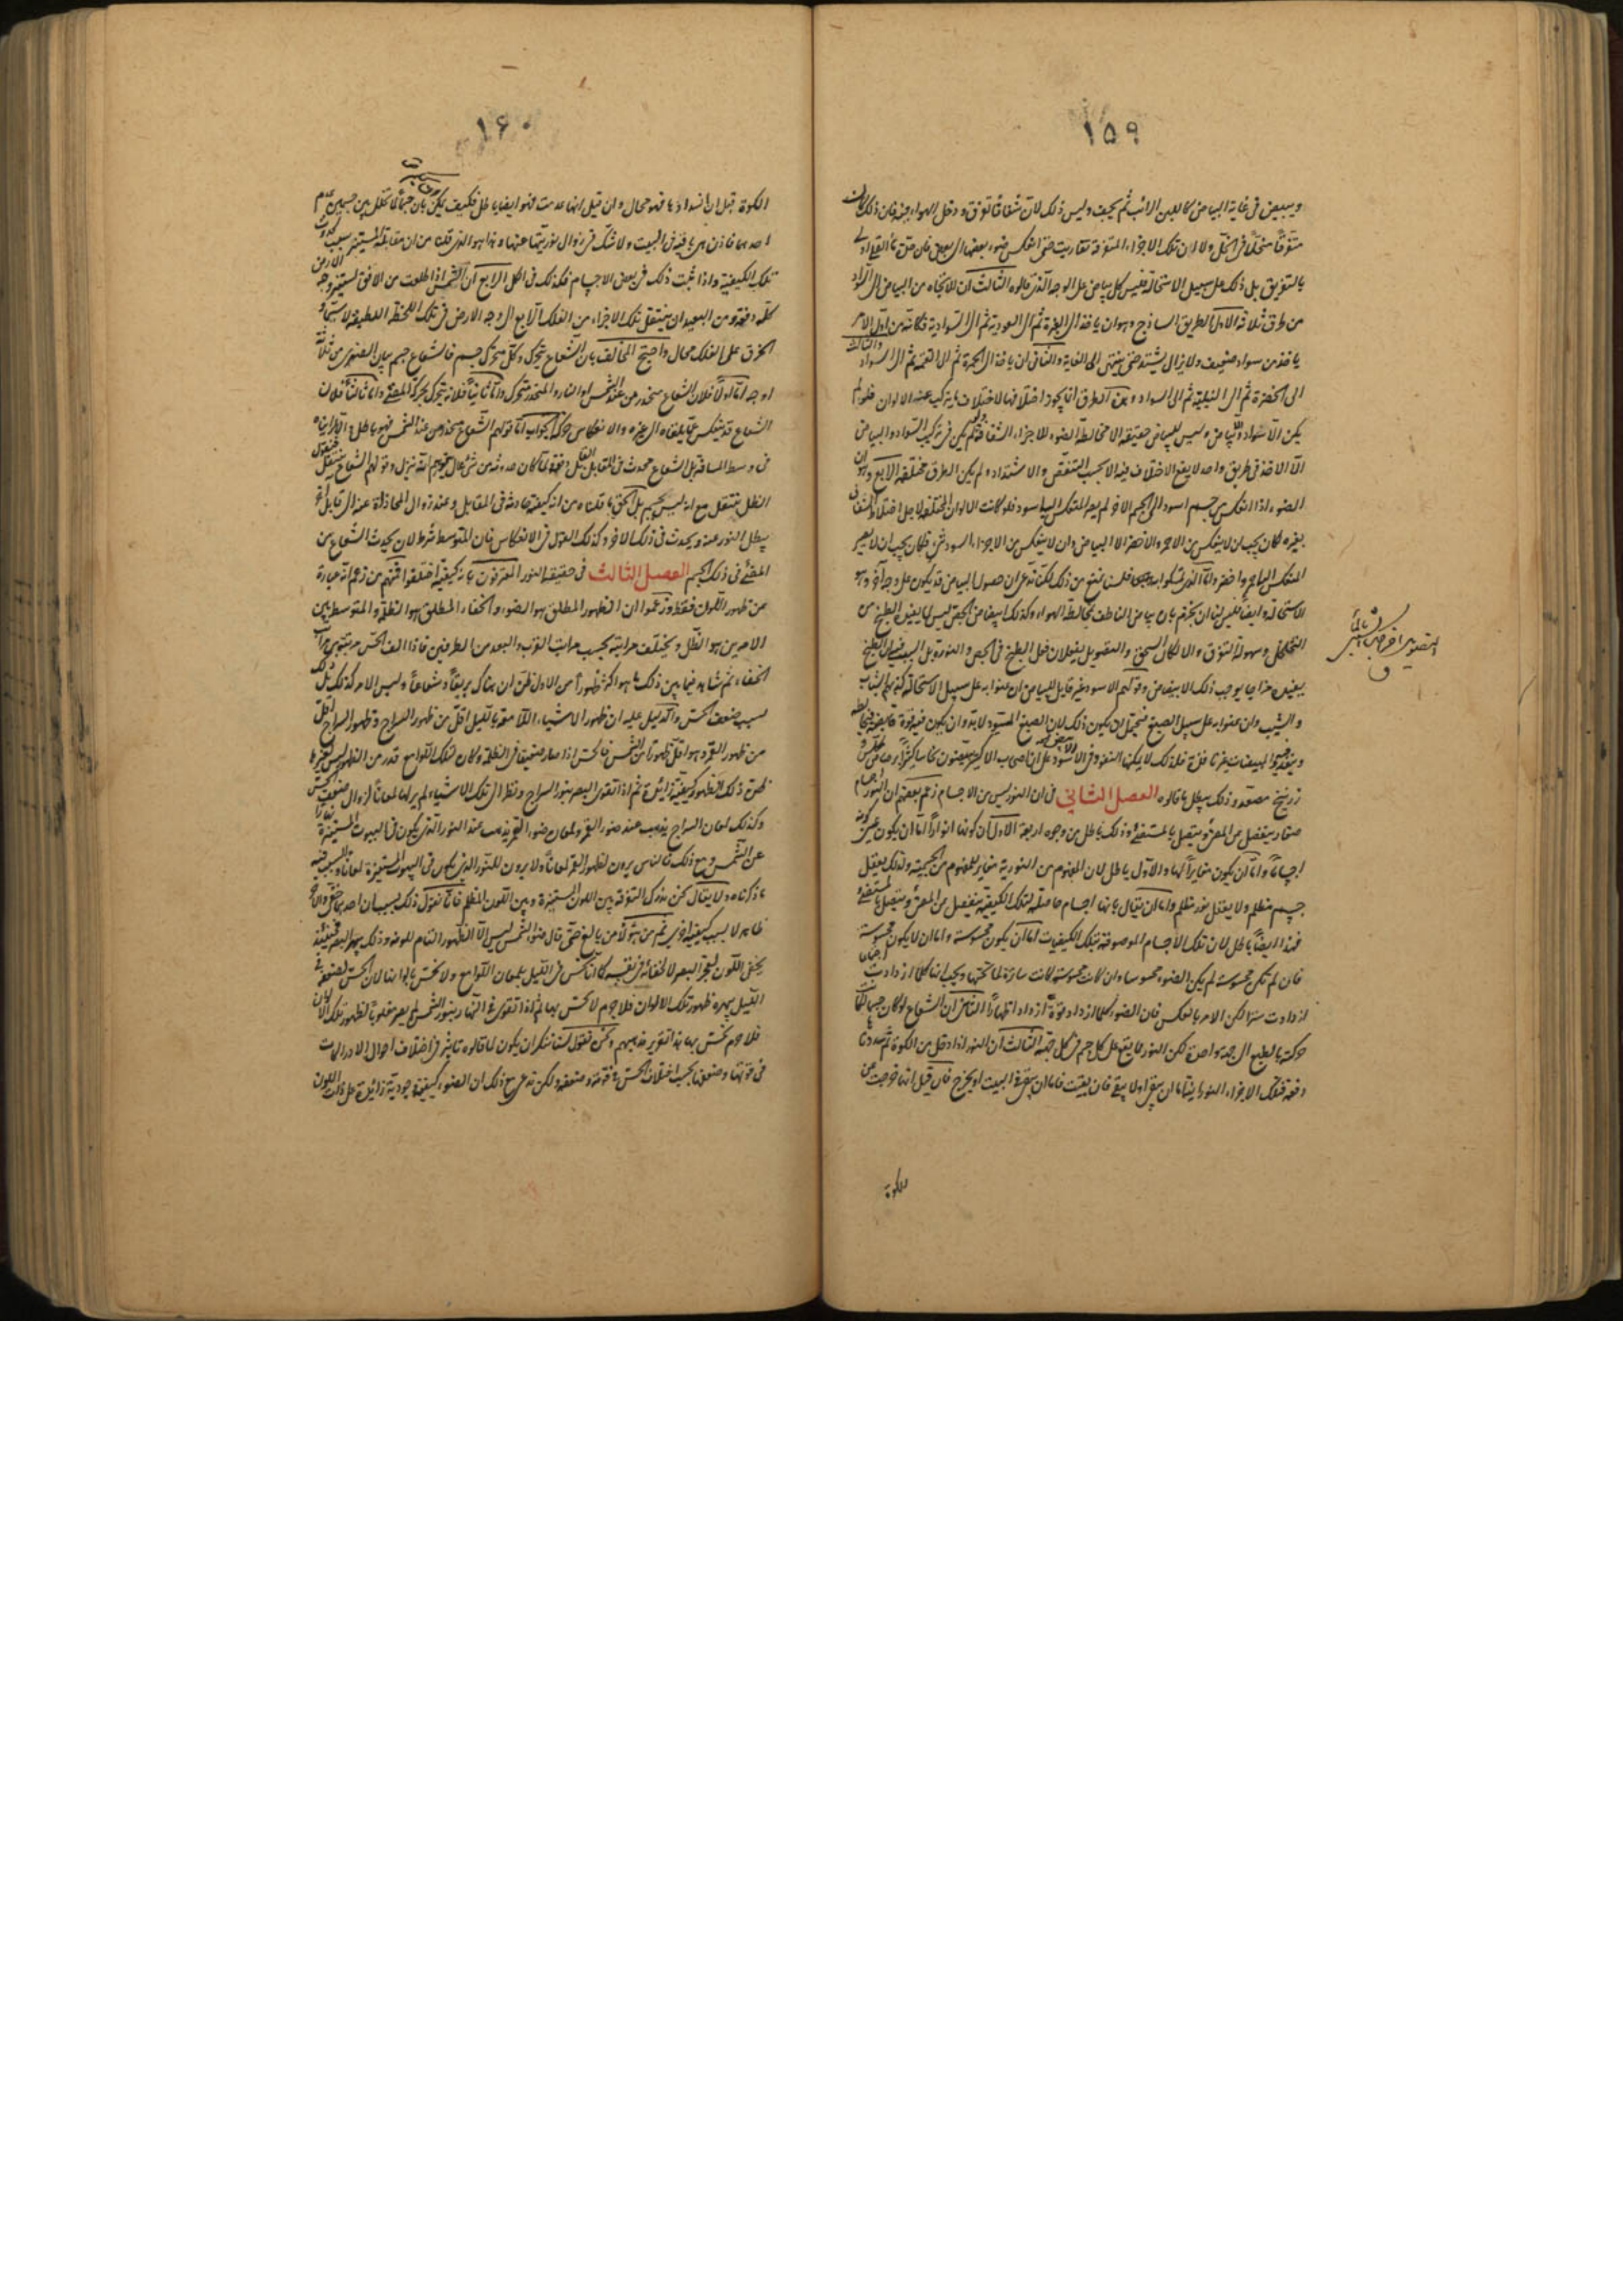 ١٥٩
ويبيض فى غاية البياض كاللبن الرائب ثم يجف وليس ذلك لان شفافا تفرق ودخل الهواء فيه فان ذلك كان
متفرقا منحلا فى الخل ولا لان تلك الاجزاء المتفرقة تقاربت حتى انعكس ضوء بعضها الى بعض فان
بالتفريق بل ذلك على سبيل الاستحالة فليس كل بياض على الوجه الذى قالوه الثالث ان الاتجاه من البياض الى السواد
من طرق ثلاثة الاول الطريق الساذج وهو ان ياخذ الى الغبرة ثم الى العودية ثم الى السوادية فكانه من اول الامر
ياخذ من سواد ضعيف ولا يزال يشتد حتى ينتهى الى الغاية والثانى ان ياخذ الى الحمرة ثم الى القتمة ثم الى السواد والثالث
الى الخضرة ثم الى النيلية ثم الى السواد وهذه الطرق انما يجوز اختلافها لاختلاف ما يتركب عنه الالوان فلو لم
يكن الا سواد وبياض وليس للبياض حقيقة الا مخالطة الضوء للاجزاء الشفافة لم يكن فى تركيب السواد والبياض
الا الاخذ فى طريق واحد لا يقع الاختلاف فيه الا بحسب التنقص والاشتداد ولم يكن الطرق مختلفة الرابع وهو ان
الضوء اذا انعكس من جسم اسود الى جسم اخر لم يصر المنعكس اليه اسود فلو كانت الالوان المختلفة لاجل اختلاط الشفاف
بغيره لكان يجب ان لا ينعكس من الاحمر والاخضر الا البياض وان لا ينعكس من الاجزاء السود شئ فكان يجب ان لا يصير
المنعكس اليه احمر واخضر واما الذى تمسكوا به فلسنا نمنع من ذلك لكنا ندعى ان حصول البياض قد يكون على وجه آخر وهو
الاستحالة وايضا فليس لنا ان نجزم بان بياض الناطف لمخالطة الهواء وكذلك ابيضاض الجص ليس لما يفيد الطبخ من
التخلخل وسهولة التفرق والا لكان السحق والتصويل يفعلان فعل الطبخ فى الجص والنورة بل السبب فيه ان الطبخ
يفيده مزاجا يوجب ذلك الابيضاض وقولهم الاسود غير قابل للبياض ان عنوا به على سبيل الاستحالة كذبهم الشباب
والشيب وان عنوا به على سبيل الصبغ فيحتمل ان يكون ذلك لان الصبغ المسود لابد وان يكون فيه قوة قابضة
زرنيخ مصعد وذلك يبطل ما قالوه الفصل الثانى فى ان النور ليس من الاجسام زعم بعضهم ان النور اجسام
صغار ينفصل عن المضئ ويتصل بالمستضئ وذلك باطل من وجوه اربعة الاول ان كونها انوارا اما ان يكون عين كونها
اجساما واما ان يكون مغايرا لها والاول باطل لان المفهوم من النورية مغاير للمفهوم من الجسمية ولذلك يعقل
جسم مظلم ولا يعقل نور مظلم واما ان يقال بانها اجسام حاملة لتلك الكيفية ينفصل عن المضئ ويتصل بالمستضئ
فهذا ايضا باطل لان تلك الاجسام الموصوفة بتلك الكيفيات اما ان يكون محسوسة واما ان لا يكون محسوسة
فان لم تكن محسوسة لم يكن الضوء محسوسا وان كانت محسوسة كانت ساترة لما تحتها ويجب انها كلما ازدادت اجتماعا
ازدادت سترا لكن الامر بالعكس فان الضوء كلما ازداد قوة ازداد اظهارا الثانى ان الشعاع لو كان جسما لكان
حركته بالطبع الى جهة واحدة لكن النور مما يقع على كل جسم فى كل جهة الثالث ان النور اذا دخل من الكوة ثم سددناها
دفعة فتلك الاجزاء النورانية اما ان يبقى او لا يبقى فان بقيت فاما ان يبقى فى البيت او يخرج فان قيل انها خرجت عن
الكوة
١۶٠
الكوة قبل انسدادها فهو محال وان قيل انها عدمت فهو ايضا باطل فكيف يمكن بان جسما لما تخلل بين جسمين عدم
احدهما فاذن هى باقية فى البيت ولا شك فى زوال نوريتها عنها وهذا هو الذى قلنا من ان مقابلة المستنير سبب لحدوث
تلك الكيفية واذا ثبت ذلك فى بعض الاجسام فكذلك فى الكل الرابع ان الشمس اذا طلعت من الافق يستنير وجه الارض
كله دفعة ومن البعيد ان ينتقل تلك الاجزاء من الفلك الرابع الى وجه الارض فى تلك اللحظة اللطيفة لاسيما و
الخرق على الفلك محال واحتج المخالف بان الشعاع متحرك وكل متحرك جسم فالشعاع جسم بيان الصغرى من ثلثة
اوجه اما اولا فلان الشعاع منحدر من عند الشمس او النار والمنحدر متحرك واما ثانيا فلانه يتحرك بحركة المضئ واما ثالثا فلان
الشعاع قد ينعكس عما يلقاه الى غيره والانعكاس حركة الجواب اما قولهم الشعاع منحدر من عند الشمس فهو باطل والا لرايناه
فى وسط المسافة بل الشعاع يحدث فى المقابل القابل دفعة
الظل ينتقل مع انه ليس بجسم بل الحق ما قلناه من انه كيفية حادثة فى المقابل وعند زوال المحاذاة عنه الى قابل آخر
يبطل النور عنه ويحدث فى ذلك الاخر وكذلك القول فى الانعكاس فان المتوسط شرط لان يحدث الشعاع من
المضئ فى ذلك الجسم الفصل الثالث فى حقيقة النور المعترفون بانه كيفية اختلفوا فمنهم من زعم انه عبارة
عن ظهور اللون فقط وزعموا ان الظهور المطلق هو الضوء والخفاء المطلق هو الظلمة والمتوسط بين
الامرين هو الظل ويختلف مراتبه بحسب مراتب القرب والبعد من الطرفين فاذا الف الحس مرتبة من مراتب
الخفاء ثم شاهد فيما بين ذلك ما هو اكثر ظهورا من الاول ظن ان هناك بريقا وشعاعا وليس الامر كذلك بل ذلك
بسبب ضعف الحس والدليل عليه ان ظهور الاشياء اللامعة بالليل اقل من ظهور السراج وظهور السراج اقل
من ظهور القمر وهو اقل ظهورا من الشمس فالحس اذا صار ضعيفا فى الظلمة وكان لتلك اللوامع قدر من الظهور ليس لغيرها
ظن ذلك الظهور كيفية زائدة ثم اذا تقوى البصر بنور السراج ونظر الى تلك الاشياء لم ير لها لمعانا لزوال ضعف الحس
وكذلك لمعان السراج يذهب عند ضوء القمر ولمعان ضوء القمر يذهب عند النور الذى يكون فى البيوت المستنيرة نهارا
عن الشمس ومع ذلك فالناس يرون لظهور القمر لمعانا ولا يرون للنور الذى يكون فى البيوت المستنيرة لمعانا والسبب فيه
ما ذكرناه ولا يقال نحن ندرك التفرقة بين اللون المستنيرة وبين اللون المظلم فانا نقول ذلك بسبب ان احدهما خفى والاخر
ظاهر لا بسبب كيفية اخرى ثم من هؤلاء من بالغ حتى قال ضوء الشمس ليس الا الظهور التام للونه وذلك يبهر البصر فحينئذ
يخفى اللون لعجز البصر لا لخفائه فى نفسه كما انا نحس فى الليل بلمعان اللوامع ولا نحس بالوانها لان الحس لضعفه فى
الليل يبهره ظهور تلك الالوان فلا جرم لا نحس بها ثم اذا تقوى فى النهار بنور الشمس لم يصر مغلوبا لظهور تلك الالوان
فلا جرم نحس بها فهذا تقرير مذهبهم ونحن نقول لسنا ننكر ان يكون لما قالوه تاثير فى اختلاف احوال الادراكات
فى قوتها وضعفها بحسب اختلاف الحس فى قوته وضعفه ولكن ندعى مع ذلك ان الضوء كيفية وجودية زائدة على ذات اللون